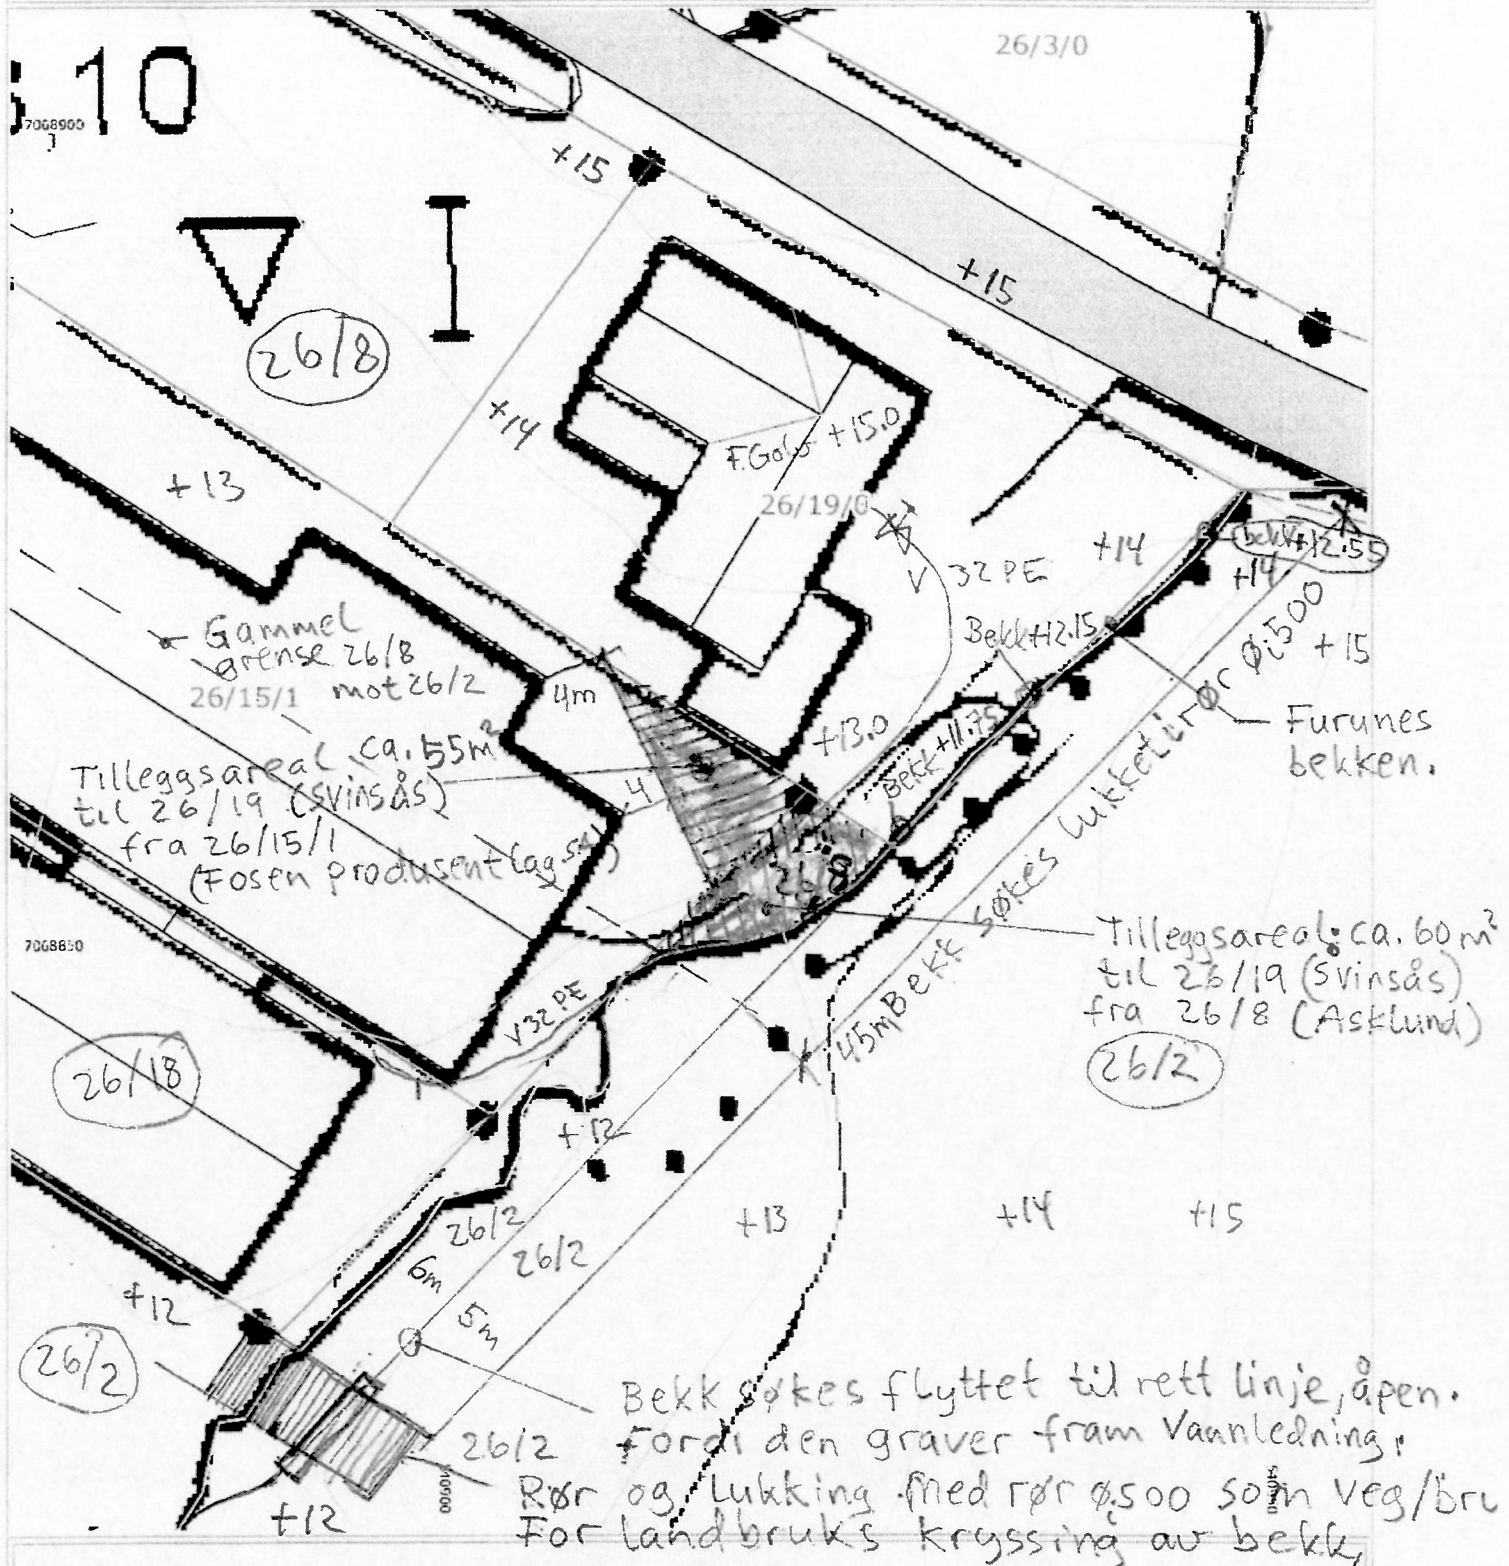 26/3/0
10
7068900
+15
+15
26/8
+14
+13
F.Golv +15.0
26/19/0
V 32 PE
+14
bekk+12.55
+14
Bekk+12.15
+15
Gammel
grense 26/8
mot 26/2
26/15/1
4m
+13.0
Bekk+11.75
Furunes
bekken.
Tilleggsareal ca. 55m²
til 26/19 (Svinsås)
fra 26/15/1
(Fosen produsentlag
4
26/8
Bekk søkes lukket i rør Øi500
45m
Tilleggsareal: ca. 60m²
til 26/19 (Svinsås)
fra 26/8 (Asklund)
26/2
V 32 PE
26/18
+12
26/2
26/2
+13
+14
+15
6m
5m
+12
26/2
Bekk søkes flyttet til rett linje, åpen.
Fordi den graver fram Vannledning.
26/2
Rør og lukking med rør ø.500 som veg/bru
For landbruks kryssing av bekk,
+12